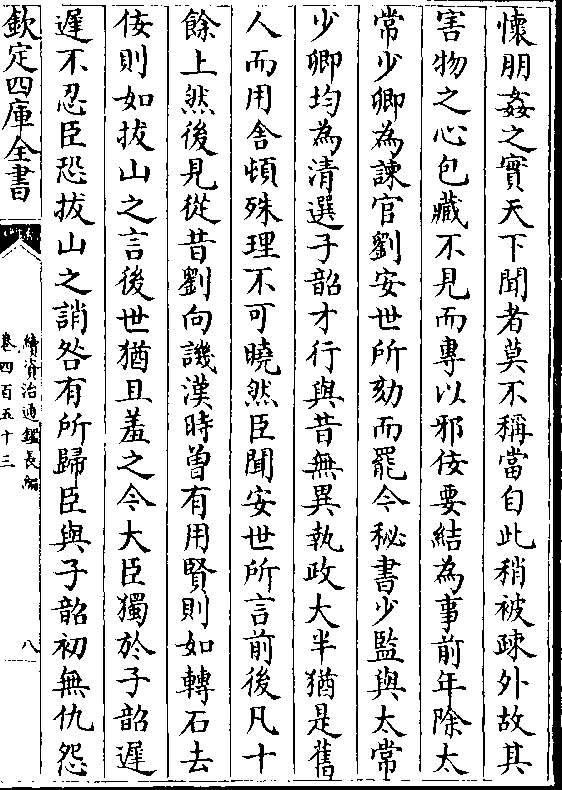 懷朋姦之實天下聞者莫不稱當自此稍被疎外故其
害物之心包藏不見而專以邪佞要結為事前年除太
常少卿為諫官劉安世所劾而罷今秘書少監與太常
少卿均為清選子韶才行與昔無異執政大半猶是舊
人而用舍頓殊理不可曉然臣聞安世所言前後凡十
餘上然後見從昔劉向譏漢時曽有用賢則如轉石去
佞則如拔山之言後世猶且羞之今大臣獨於子韶遲
遲不忍臣恐拔山之誚咎有所歸臣與子韶初無仇怨
欽定四庫全書
續資治通鑑長編
卷四百五十三
八